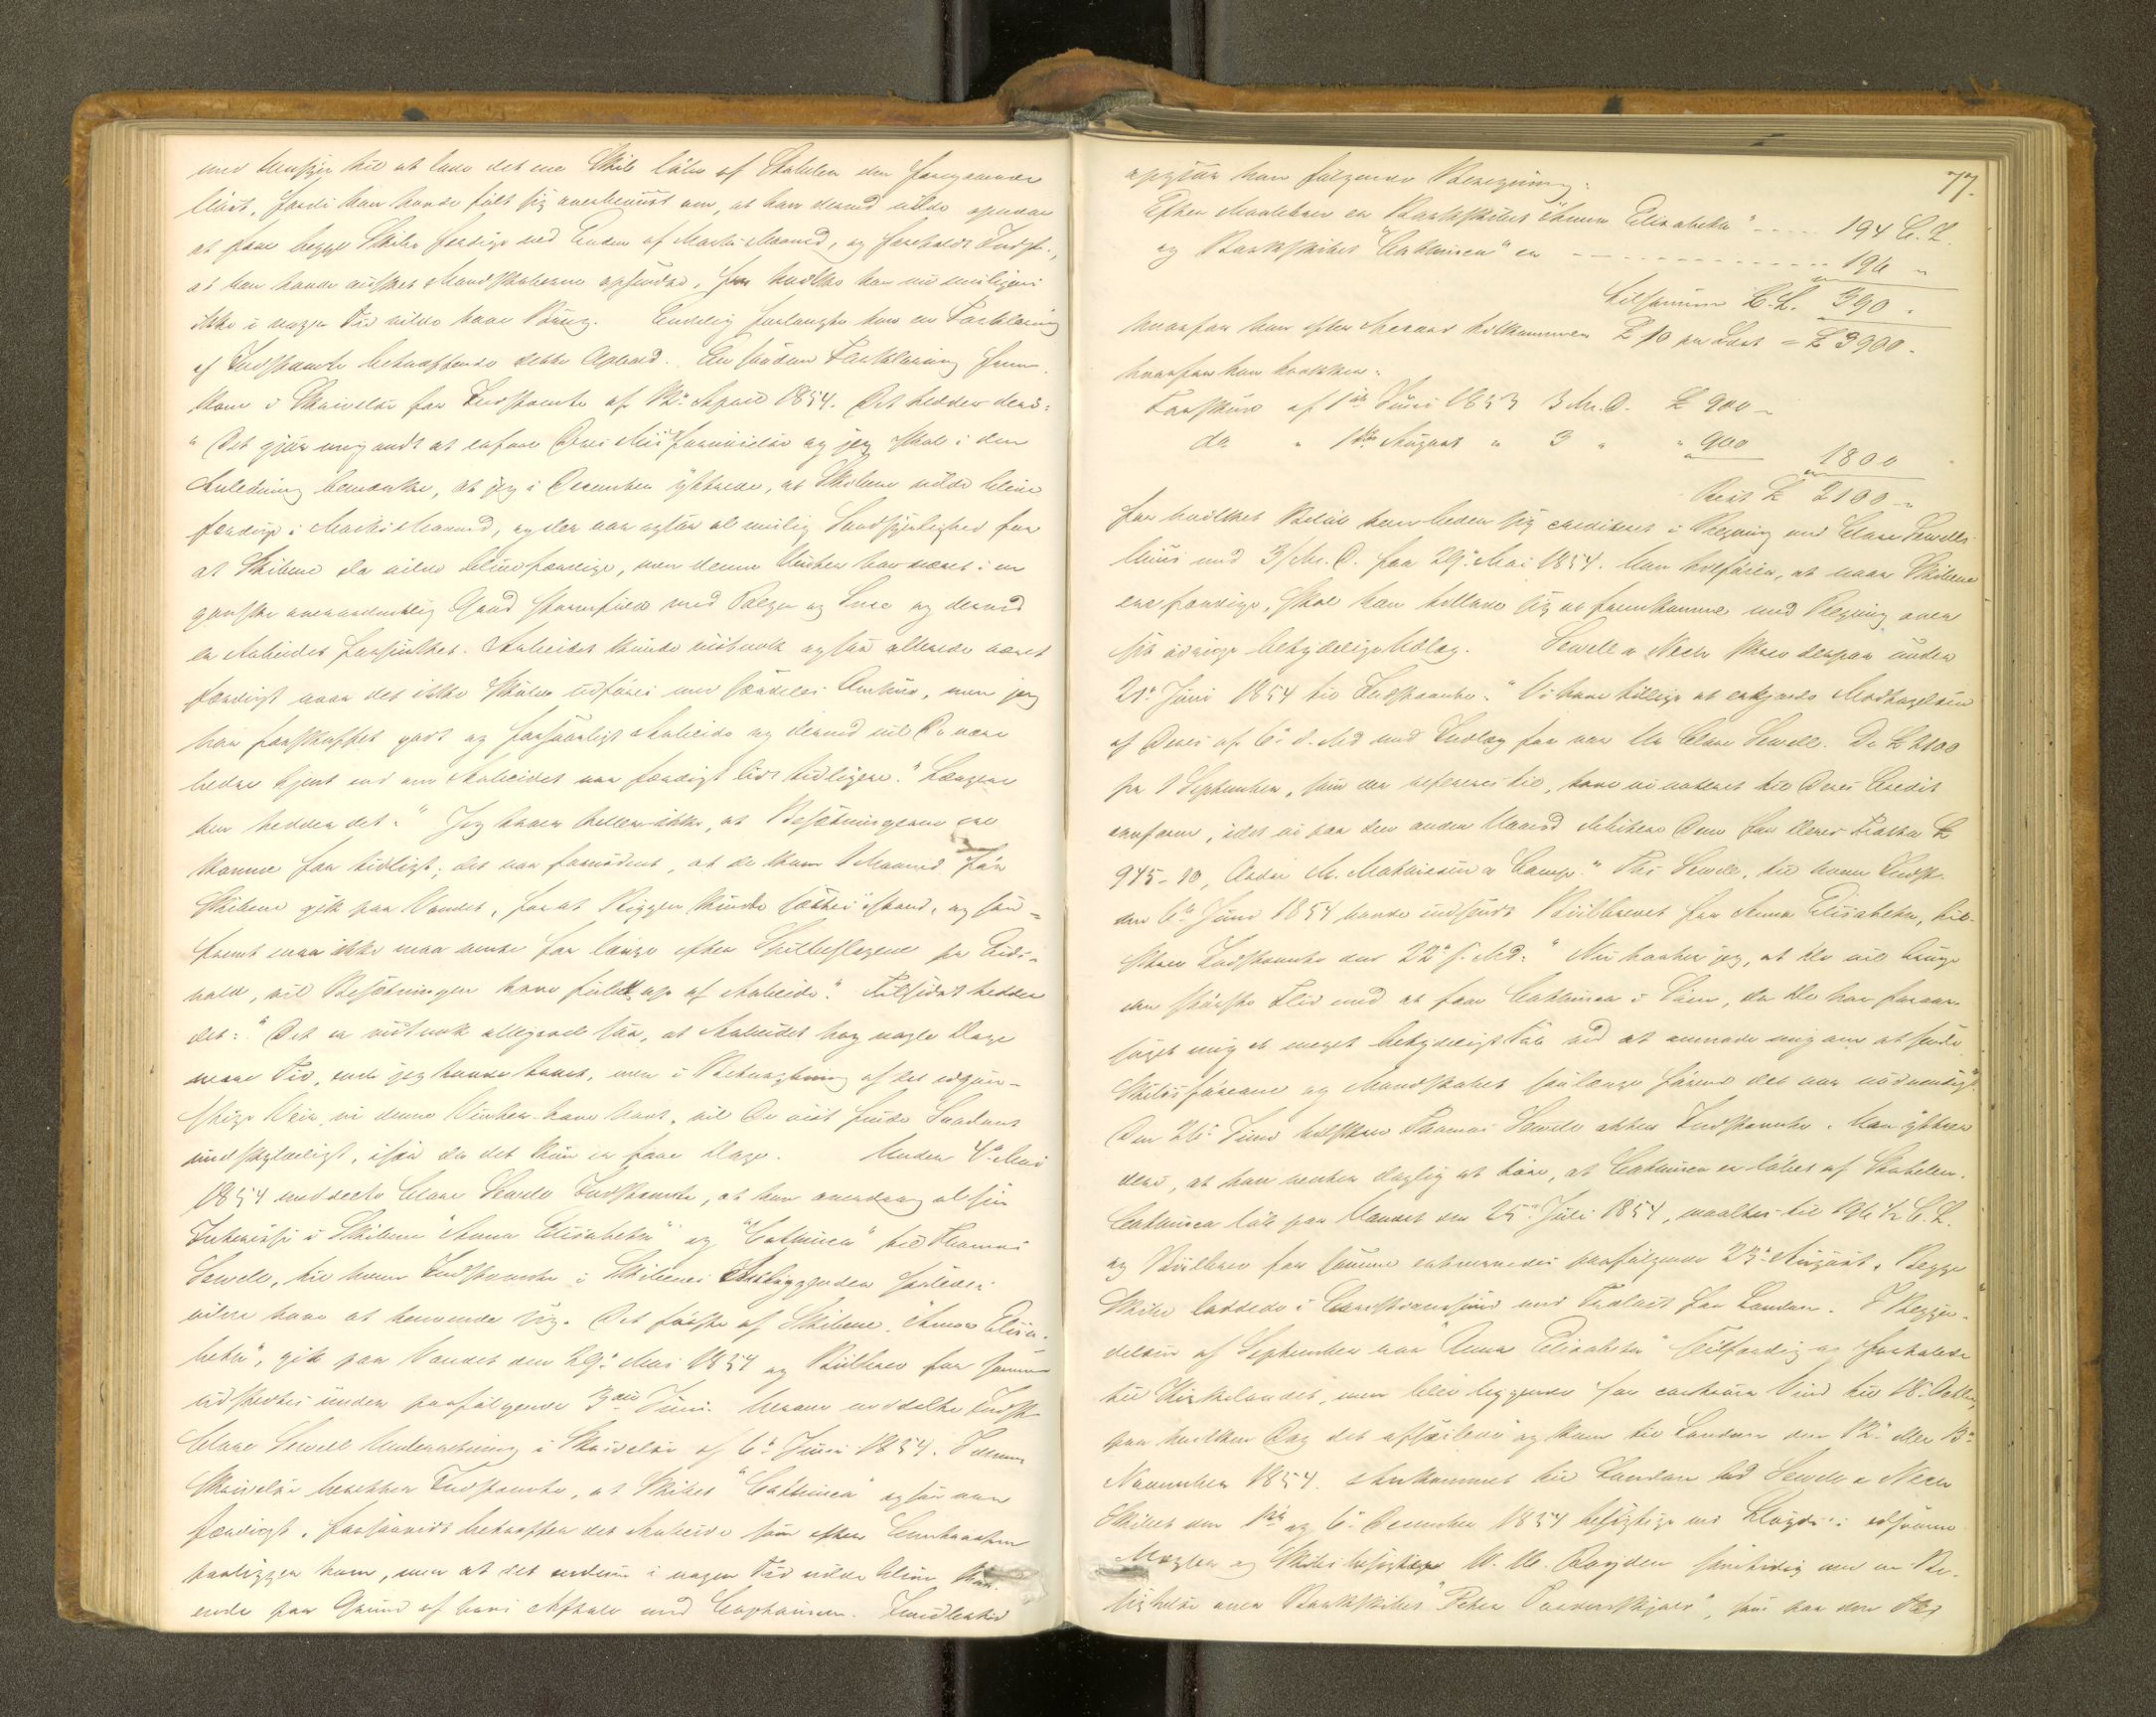 med Hensyn til at lade det ene Skib løbe af Stabelen den foregaaende
Høst, fordi han havde følt sig overbevist om, at han derved vilde opnaae
at faae begge Skibe færdige ved Enden af Marts Maaned, og foreholdt Indst.,
at han havde ønsket Mandskaberne opsendte, for hvilke han nu muligens
ikke i nogen Tid vilde have Brug. Endelig forlangte han en Forklaring
af Indstævnte betræffende dette Ophold. En saadan Forklaring frem-
kom i Skrivelse fra Indstævnte af 12te April 1854. Det hedder deri:
"Det gjør mig ondt at erfare Deres Misfornøielse og jeg skal i den
Anledning bemærke, at jeg i December yttrede, at Skibene vilde blive
færdige i Marts Maaned, og der var ogsaa al mulig Sandsynlighed for
at Skibene da vilde blive færdige, men denne Vinter har været i en
ganske overordentlig Grad stormfuld med Regn og Snee og derved
er Arbeidet forsinket. Arbeidet kunde vistnok ogsaa allerede været
færdigt naar det ikke skulde udføres med særdeles Omhue, men jeg
har forskaffet godt og forsvarligt Arbeide og dermed vil De være
bedre tjent end om Arbeidet var færdigt lidt tidligere." Længere
hen hedder det: "Jeg troer heller ikke, at Besætningerne ere
komne for tidligt; det var fornødent, at de kom 1 Maaned før
Skibene gik paa Vandet, for at Riggen kunde sættes istand, og saa-
fremt man ikke maa vente for længe efter Spilbeslagene fra Eids-
vold, vil Besætningen have fuldt op af Arbeide." Tilsidst hedder
det: "Det er vistnok alligevel saa, at Arbeidet tog nogle Dage
mere Tid, end jeg havde troet, men i Betragtning af det ugun-
stige Veir, vi denne Vinter have havt, vil De vist finde Saadant
undskyldeligt, især da det kun er faae Dage. Under 4de Mai
1854 meddeelte Clare Sewell Indstævnte, at han overdrog al sin
Interesse i Skibene "Anna Elisabeth" og "Cathinca" til Thomas
Sewell, til hvem Indstævnte i Skibenes Anliggender saaledes
vilde have at henvende sig. Det første af Skibene, "Anna Elisa-
beth", gik paa Vandet den 29de Mai 1854 og Bilbrev for samme
udstedtes under paafølgende 3die Juni. Herom meddelte Indst.
Clare Sewell Underretning i Skrivelse af 6te Juni 1854. I denne
Skrivelse beretter Indstævnte, at Skibet "Cathinca" ogsaa var
færdigt, forsaavidt betræffer det Arbeide som efter Contracten
paaligger ham, men at det endnu i nogen Tid vilde blive
ende paa Grund af hans Aftale med Capitainen. Imidlertid
77.
opgjør han følgende Beregning:
Efter Maalebrev er Barkskibet "Anna Elisabeth" - - - - 194 C.L.
og Barkskibet "Cathinca" er - - - - - - - - - - 196 "
tilsammen C.L. 390.
hvorfor han efter Accord tilkommer £ 10 pr Læst = £ 3900.
hvorpaa han trækker:
Forskud af 1ste Juni 1853 3 Md. D. £ 900 "
do " 1ste August " 3 " " 900 1800
Rest £ 2100 "
for hvilket Beløb han beder sig crediteret i Regning med Clare Sewells
Huus med 3/Md. D. fra 29de Mai 1854. Han tilføier, at naar Skibene
ere færdige, skal han tillade sig at fremkomme med Regning over
sit øvrige betydelige Udlæg. Sewell & Neck skrev derpaa under
21de Juni 1854 til Indstævnte: "Vi have tillige at erkjende Modtagelsen
af Deres af 6te d. Md. med Indlæg for vor Mr Clare Sewell. De £ 2100
pr 1 September, som der refereres til, have vi noteret til Deres Credit
conform, idet vi paa den anden Haand debitere Dem for Deres Tratte £
945-10, Ordre M. Mathiesen & Comp." Ths Sewell, til hvem Indst.
den 6te Juni 1854 havde indsendt Bilbrevet for Anna Elisabeth, til-
skrev Indstævnte den 22de s. Md.: "Nu haaber jeg, at De vil bruge
den største Flid med at faae Cathinca i Søen, da De har foraar-
saget mig et meget betydeligt Tab ved at anmode mig om at sende
Skibsførerne og Mandskabet saalænge førend det var nødvendigt."
Den 26de Juni tilskrev Thomas Sewell atter Indstævnte. Han yttrer
deri, at han venter daglig at høre, at Cathinca er løbet af Stabelen.
Cathinca løb paa Vandet den 25de Juli 1854, maaltes til 196 1/2 C.L.
og Bilbrev for samme erhvervedes paafølgende 23de August. Begge
Skibe ladede i Christianssund med Trælast for London. I Begyn-
delsen af September var "Anna Elisabeth" seilfærdig og forhalede
til Kirkelandet, men blev liggende for contrair Vind til 18de Octbr,
paa hvilken Dag det afseilede og kom til London den 12te eller 13de
November 1854. Ankommet til London lod Sewell & Neck
Skibet den 1ste og 6te December 1854 besigtige ved Lloyds's edsvorne
Mægler og Skibsbesigtiger W. H. Rayden samtidig med en Be-
sigtelse over Barkskibet "Peter Tordenskjold", som paa den Tid